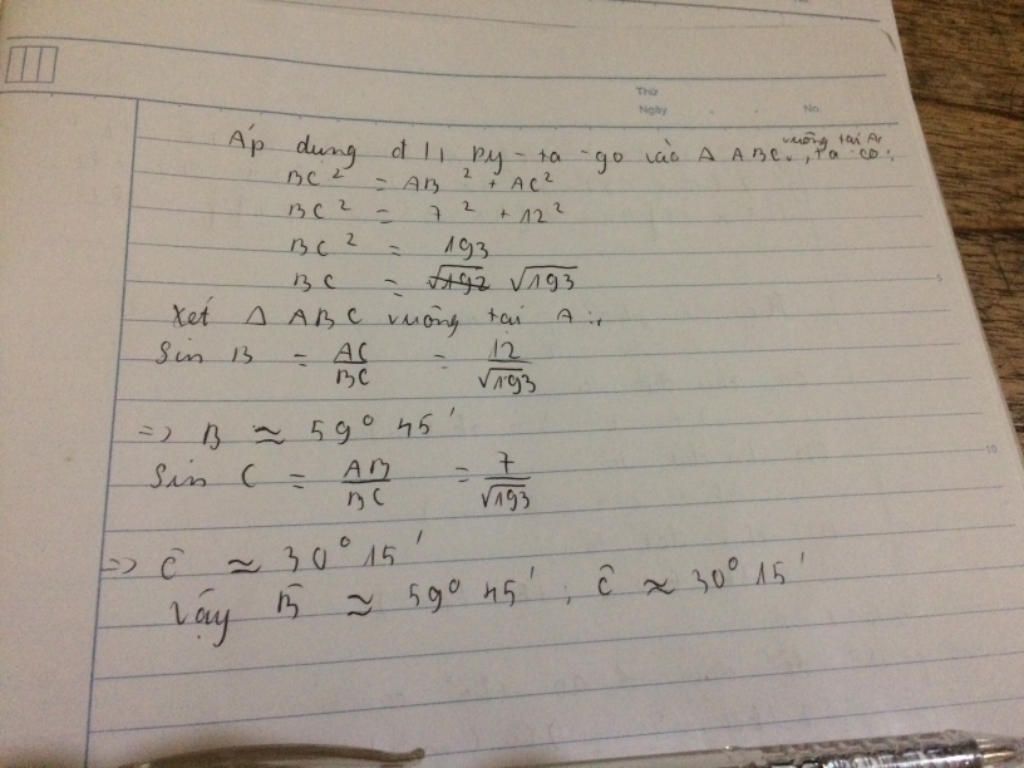 Thứ
Ngày No.
Áp dụng đ lí Py-ta-go vào Δ ABC vuông tại A, ta có:
BC² = AB² + AC²
BC² = 7² + 12²
BC² = 193
BC = √192 √193
Xét Δ ABC vuông tại A:
Sin B = AC/BC = 12/√193
=> B ≈ 59° 45'
Sin C = AB/BC = 7/√193
=> Ĉ ≈ 30° 15'
Vậy B̂ ≈ 59° 45' ; Ĉ ≈ 30° 15'
5
10